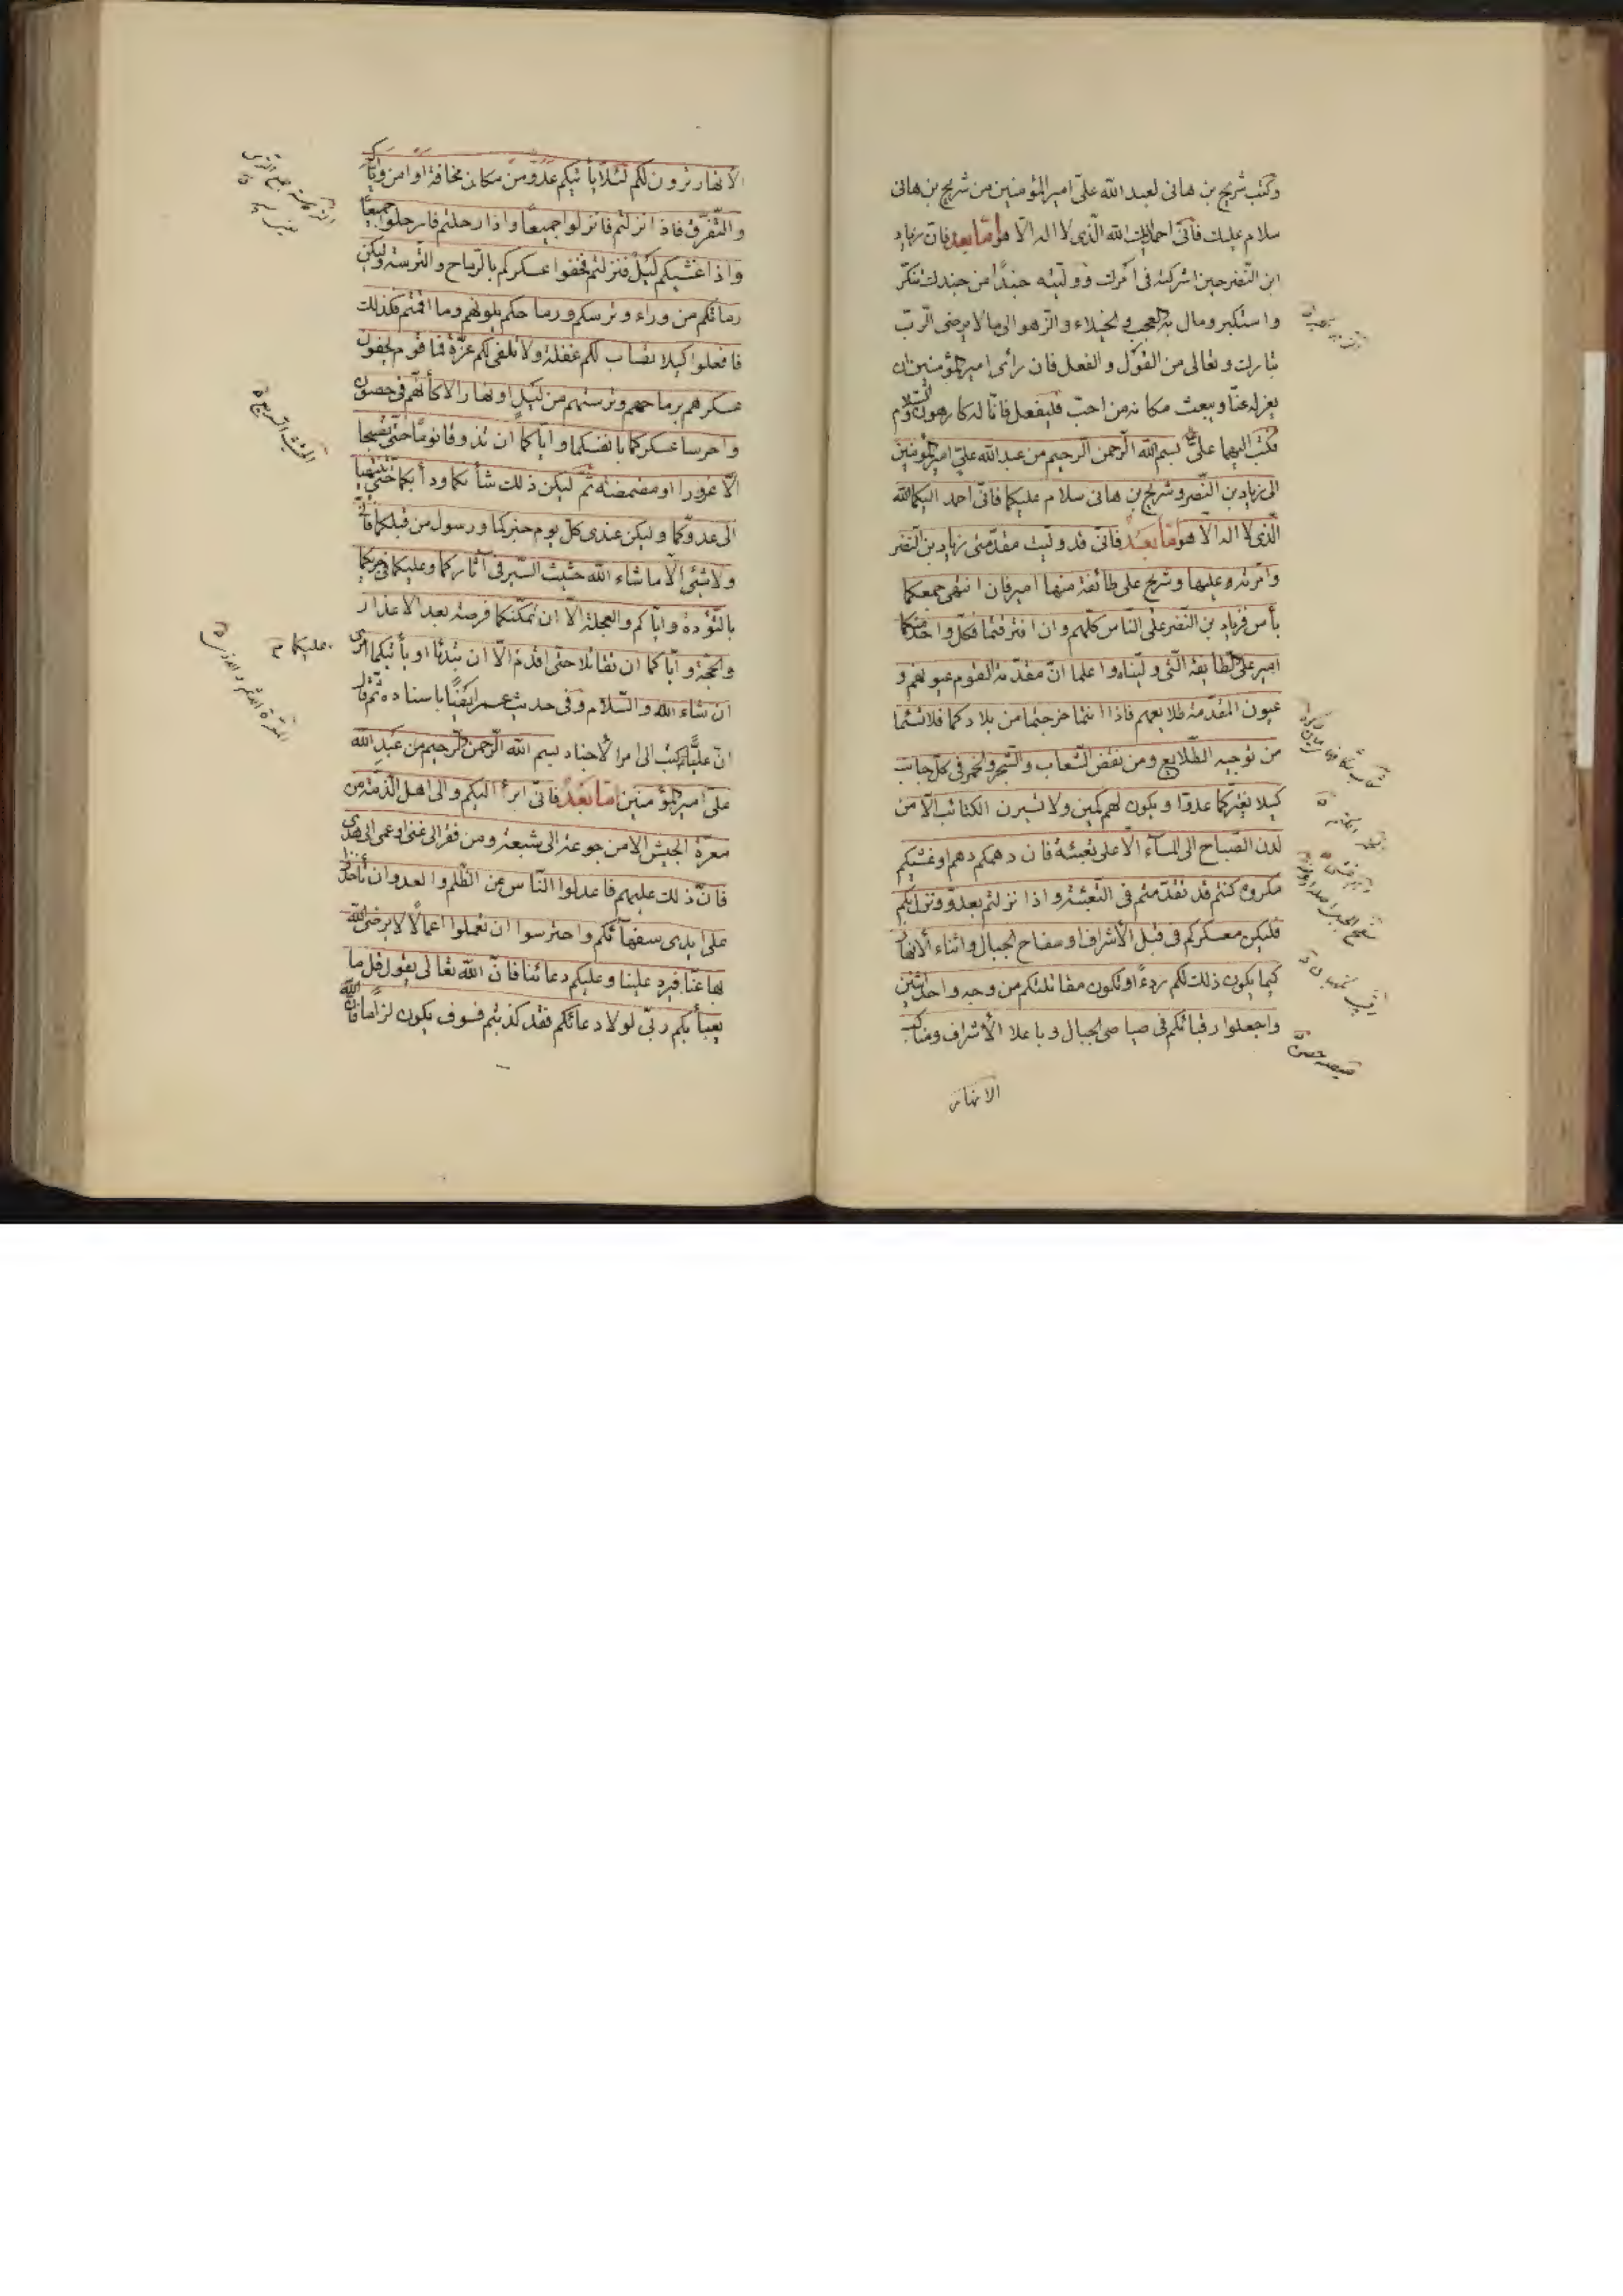 وكتب شريح بن هانى لعبد الله علىّ امير المؤمنين من شريح بن هانى
سلام عليك فانّى احمد اليك الله الّذى لا اله الّا هو امّا بعد فانّ زياد
ابن النّضر حين اشركته فى امرك وولّيته جندًا من جندك تنكّر
واستكبر ومال به العجب والخيلاء والزّهو الى ما لا يرضى الرّبّ
تبارك وتعالى من القول والفعل فان رأى امير المؤمنين ان
يعزله عنّا ويبعث مكانه من احبّ فليفعل فانّا له كارهون والسّلام
فكتب اليهما علىّ بسم الله الرّحمن الرّحيم من عبد الله علىّ امير المؤمنين
الى زياد بن النّضر وشريح بن هانى سلام عليكما فانّى احمد اليكما الله
الّذى لا اله الّا هو امّا بعد فانّى قد ولّيت مقدّمتى زياد بن النّضر
وامّرته عليها وشريح على طائفة منها امير فان انتهى جمعكما
بأس فزياد بن النّضر على النّاس كلّهم وان افترقتما فكلّ واحد منكما
امير على الطّايفة الّتى ولّيناه واعلما انّ مقدّمة القوم عيونهم و
عيون المقدّمة طلايعهم فاذا انتما خرجتما من بلادكما فلا تسئما
من توجيه الطّلايع ومن نفض الشّعاب والشّجر والخمر فى كلّ جانب
كيلا يغترّكما عدوّا ويكون لهم كمين ولا تسيرن الكتائب الّا من
لدن الصّباح الى المسآء الّا على تعبئة فان دهمكم دهم او غشيكم
مكروه كنتم قد تقدّمتم فى التّعبئة واذا نزلتم بعدوّ ونزل بكم
فليكن معسكركم فى قبل الأشراف او سفاح الجبال واثناء الأنهار
كيما يكون ذلك لكم ردءً او تكون مقاتلتكم من وجه واحد او اثنين
واجعلوا رقبائكم فى صياصى الجبال وباعلا الأشراف ومناكب
الانهار
الأنهار يرون لكم لئلّا يأتيكم عدوّ من مكان مخافة او امن وايّاكم
والتّفرّق فاذا نزلتم فانزلوا جميعًا واذا رحلتم فارحلوا جميعًا
واذا غشيكم ليل فنزلتم فحفوا عسكركم بالرّماح والترسة وليكن
رماتكم من وراء وترسكم ورماحكم يلونهم وما اقمتم فكذلك
فافعلوا كيلا تصاب لكم غفلة ولا تلفى لكم غرّة فما قوم يحفون
عسكرهم برماحهم وترستهم من ليل او نهار الّا كأنّهم فى حصون
واحرسا عسكركما بانفسكما وايّاكما ان تذوقا نومًا حتّى تصبحا
الّا غرورا او مضمضة ثمّ ليكن ذلك شأنكما ودأبكما حتّى تنتهيا
الى عدوّكما وليكن عندى كلّ يوم خبركما ورسول من قبلكما فانّى
ولا شئى الّا ما شاء الله حثيث السّير فى آثاركما وعليكما فى حربكما
بالتّؤدة وايّاكم والعجلة الّا ان تمكّنكما فرصة بعد الاعذار
والحجّة وايّاكما ان تقاتلا حتّى اقدم الّا ان تبدئا او يأتيكما امرى
عليكما
ان شاء الله والسّلام وفى حديث عمر ايضًا باسناده ثمّ قال
انّ عليًّا كتب الى امراء الأجناد بسم الله الرّحمن الرّحيم من عبد الله
علىّ امير المؤمنين امّا بعد فانّى ابرأ اليكم والى اهل الذّمّة من
معرّة الجيش الا من جوعة الى شبعة ومن فقر الى غنى او عمى الى هدى
فانّ ذلك عليهم فاعدلوا النّاس عن الظّلم والعدوان وخذوا
على ايدى سفهآئكم واحترسوا ان تعملوا اعمالًا لا يرضى الله
بها عنّا فيرد علينا وعليكم دعائنا فانّ الله تعالى يقول قل ما
يعبأ بكم ربّى لولا دعائكم فقد كذّبتم فسوف يكون لزامًا فانّ الله